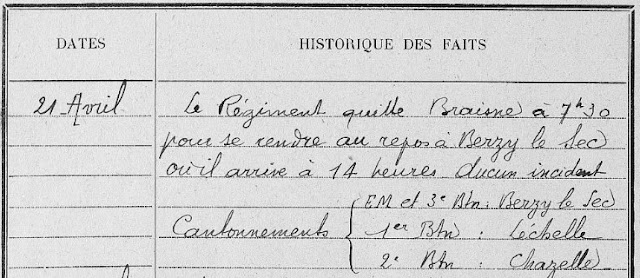 DATES
HISTORIQUE DES FAITS
21 Avril
Le Régiment quitte Braisne à 7h30
pour se rendre au repos à Berzy le Sec
où il arrive à 14 heures Aucun incident
Cantonnements
EM et 3e Btn : Berzy le Sec
1er Btn : Léchelle
2e Btn : Chazelle